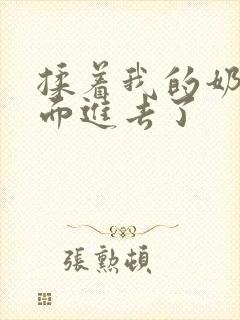 揉着我的奶
而进去了
張勲頓